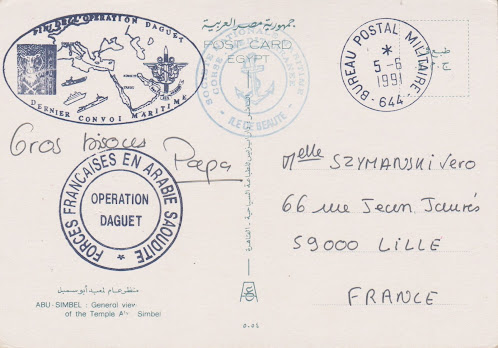 FIN DE L'OPERATION DAGUET
DERNIER CONVOI MARITIME
جمهورية مصر العربية
POST CARD
EGYPT
ILE DE BEAUTÉ
BUREAU POSTAL MILITAIRE
*
5-6
1991
- 644 -
Gros bisous
Papa
FORCES FRANCAISES EN ARABIE SAOUDITE *
OPERATION
DAGUET
Melle SZYMANSKI Vero
66 rue Jean Jaurés
59000 LILLE
FRANCE
منظر عام لمعبد أبو سمبل
ABU-SIMBEL : General view
of the Temple Abu Simbel